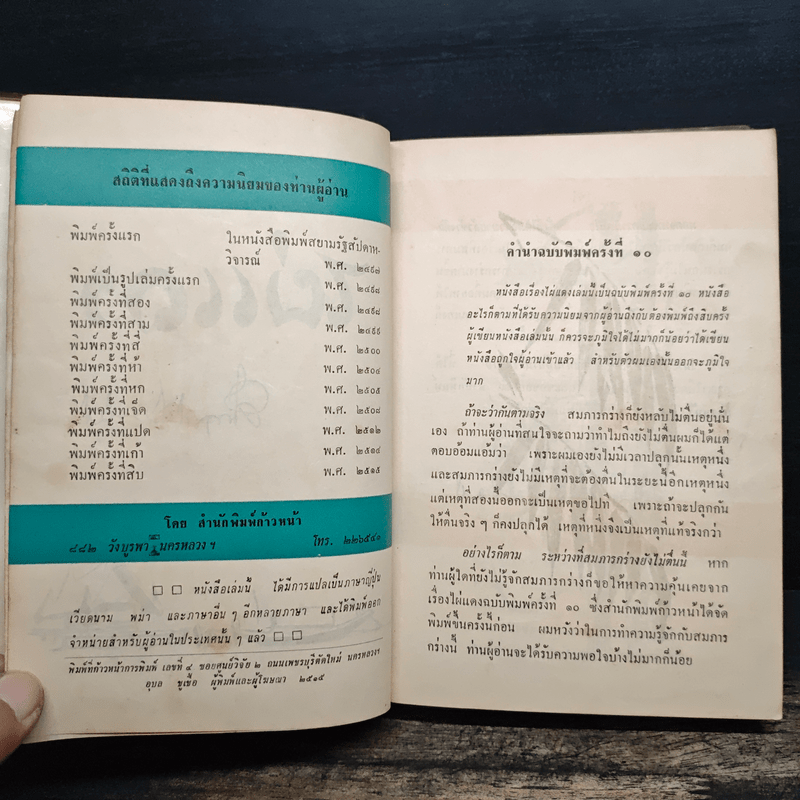 สถิติที่แสดงถึงความนิยมของท่านผู้อ่าน
พิมพ์ครั้งแรก ในหนังสือพิมพ์สยามรัฐสัปดาห-
วิจารณ์ พ.ศ. ๒๔๙๗
พิมพ์เป็นรูปเล่มครั้งแรก พ.ศ. ๒๔๙๘
พิมพ์ครั้งที่สอง พ.ศ. ๒๔๙๘
พิมพ์ครั้งที่สาม พ.ศ. ๒๔๙๙
พิมพ์ครั้งที่สี่ พ.ศ. ๒๕๐๐
พิมพ์ครั้งที่ห้า พ.ศ. ๒๕๐๔
พิมพ์ครั้งที่หก พ.ศ. ๒๕๐๕
พิมพ์ครั้งที่เจ็ด พ.ศ. ๒๕๐๘
พิมพ์ครั้งที่แปด พ.ศ. ๒๕๑๒
พิมพ์ครั้งที่เก้า พ.ศ. ๒๕๑๔
พิมพ์ครั้งที่สิบ พ.ศ. ๒๕๑๕
โดย สำนักพิมพ์ก้าวหน้า
๘๔๒ วังบูรพา นครหลวง ฯ โทร. ๒๒๖๕๔๑
หนังสือเล่มนี้ ได้มีการแปลเป็นภาษาญี่ปุ่น
เวียดนาม พม่า และภาษาอื่น ๆ อีกหลายภาษา และได้พิมพ์ออก
จำหน่ายสำหรับผู้อ่านในประเทศนั้น ๆ แล้ว
พิมพ์ที่ก้าวหน้าการพิมพ์ เลขที่ ๔ ซอยศูนย์วิจัย ๒ ถนนเพชรบุรีตัดใหม่ นครหลวงฯ
อุบล ชูเชื้อ ผู้พิมพ์และผู้โฆษณา ๒๕๑๕
คำนำฉบับพิมพ์ครั้งที่ ๑๐
หนังสือเรื่องไผ่แดงเล่มนี้เป็นฉบับพิมพ์ครั้งที่ ๑๐ หนังสือ
อะไรก็ตามที่ได้รับความนิยมจากผู้อ่านถึงกับต้องพิมพ์ถึงสิบครั้ง
ผู้เขียนหนังสือเล่มนั้น ก็ควรจะภูมิใจได้ไม่มากก็น้อยว่าได้เขียน
หนังสือถูกใจผู้อ่านเข้าแล้ว สำหรับตัวผมเองนั้นออกจะภูมิใจ
มาก
ถ้าจะว่ากันตามจริง สมภารกร่างก็ยังหลับไม่ตื่นอยู่นั่น
เอง ถ้าท่านผู้อ่านที่สนใจจะถามว่าทำไมถึงยังไม่ตื่นผมก็ได้แต่
ตอบอ้อมแอ้มว่า เพราะผมเองยังไม่มีเวลาปลุกนั้นเหตุหนึ่ง
และสมภารกร่างยังไม่มีเหตุที่จะต้องตื่นในระยะนี้อีกเหตุหนึ่ง
แต่เหตุที่สองนี้ออกจะเป็นเหตุขอไปที เพราะถ้าจะปลุกกัน
ให้ตื่นจริง ๆ ก็คงปลุกได้ เหตุที่หนึ่งจึงเป็นเหตุที่แท้จริงกว่า
อย่างไรก็ตาม ระหว่างที่สมภารกร่างยังไม่ตื่นนี้ หาก
ท่านผู้ใดที่ยังไม่รู้จักสมภารกร่างก็ขอให้หาความคุ้นเคยจาก
เรื่องไผ่แดงฉบับพิมพ์ครั้งที่ ๑๐ ซึ่งสำนักพิมพ์ก้าวหน้าได้จัด
พิมพ์ขึ้นครั้งนี้ก่อน ผมหวังว่าในการทำความรู้จักกับสมภาร
กร่างนี้ ท่านผู้อ่านจะได้รับความพอใจบ้างไม่มากก็น้อย